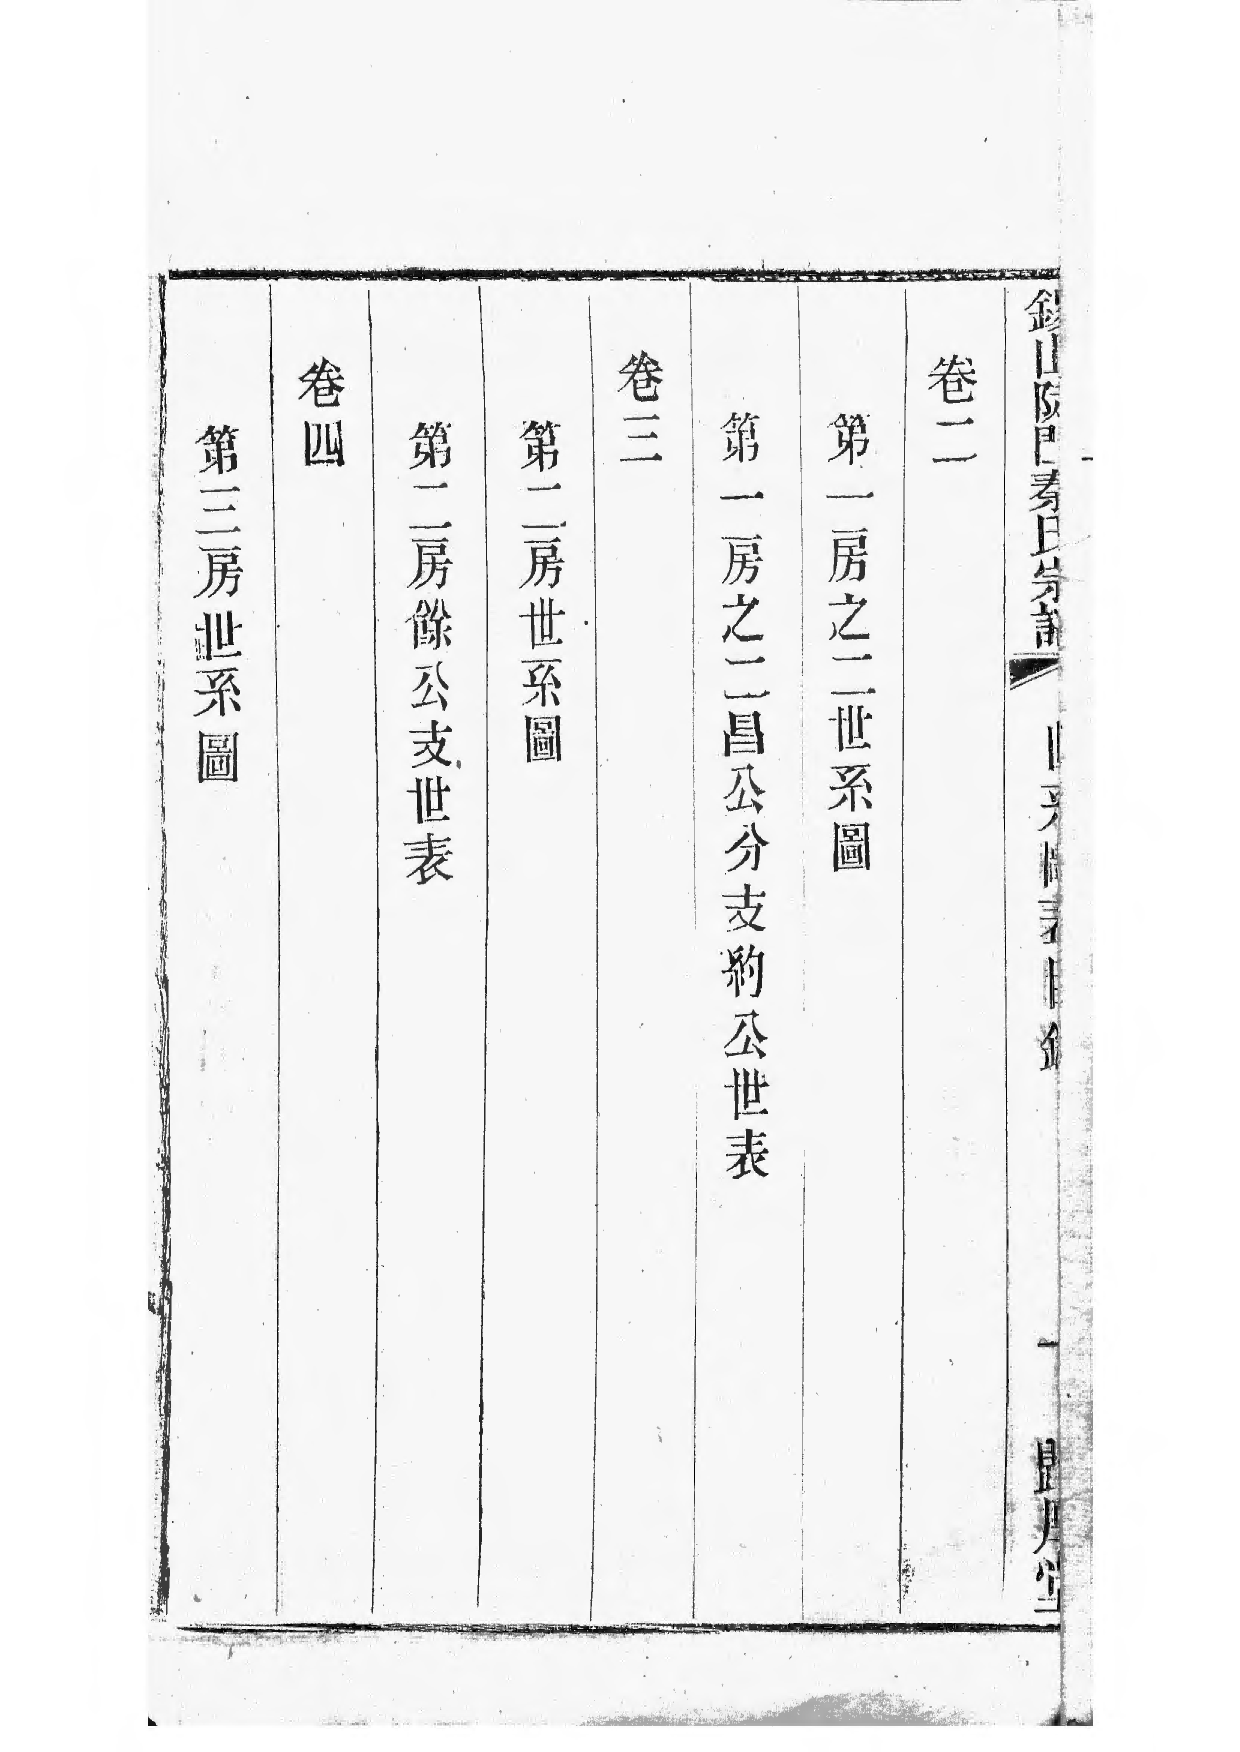 錫山陡門秦氏宗譜
世系圖表目錄
一
卷二
第一房之二世系圖
第一房之二昌公分支約公世表
卷三
第二房世系圖
第二房餘公支世表
卷四
第三房世系圖